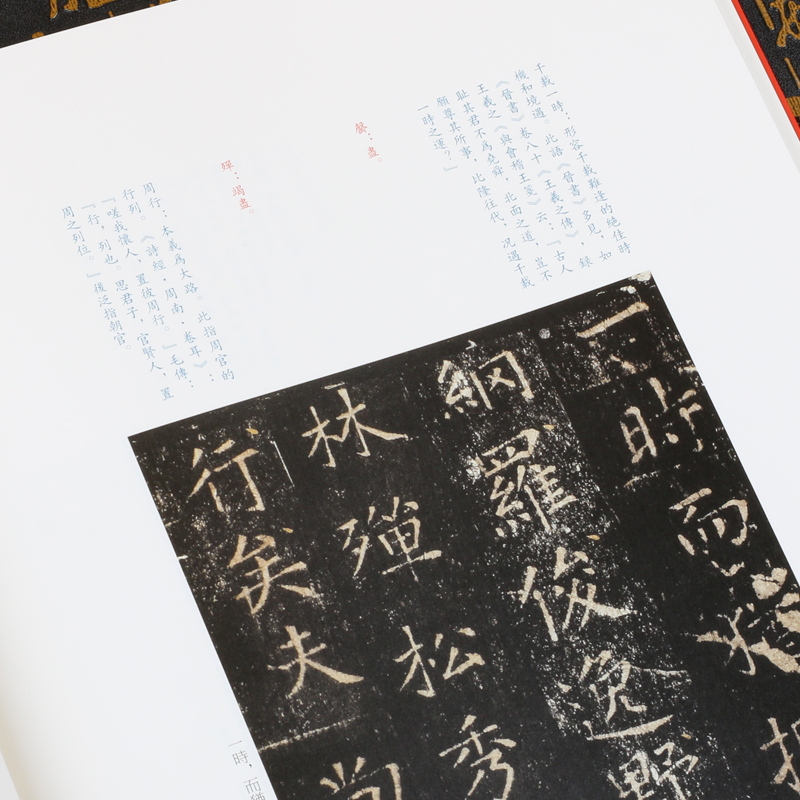 千載一時：形容千載難逢的絕佳時
機和境遇。此語《晉書》多見，如
《晉書》卷八十《王羲之傳》錄
王羲之《與會稽王箋》云：『古人
恥其君不爲堯舜，北面之道，豈不
願尊其所事，比隆往代，況遇千載
一時之運？』
罄：盡。
殫：竭盡。
周行：本義爲大路。此指周官的
行列。《詩經·周南·卷耳》：
『嗟我懷人，寘彼周行。』毛傳：
『行，列也。思君子，官賢人，置
周之列位。』後泛指朝官。
一時而猶
網羅俊逸野
林殫松秀
行矣夫尚
一時，而猶